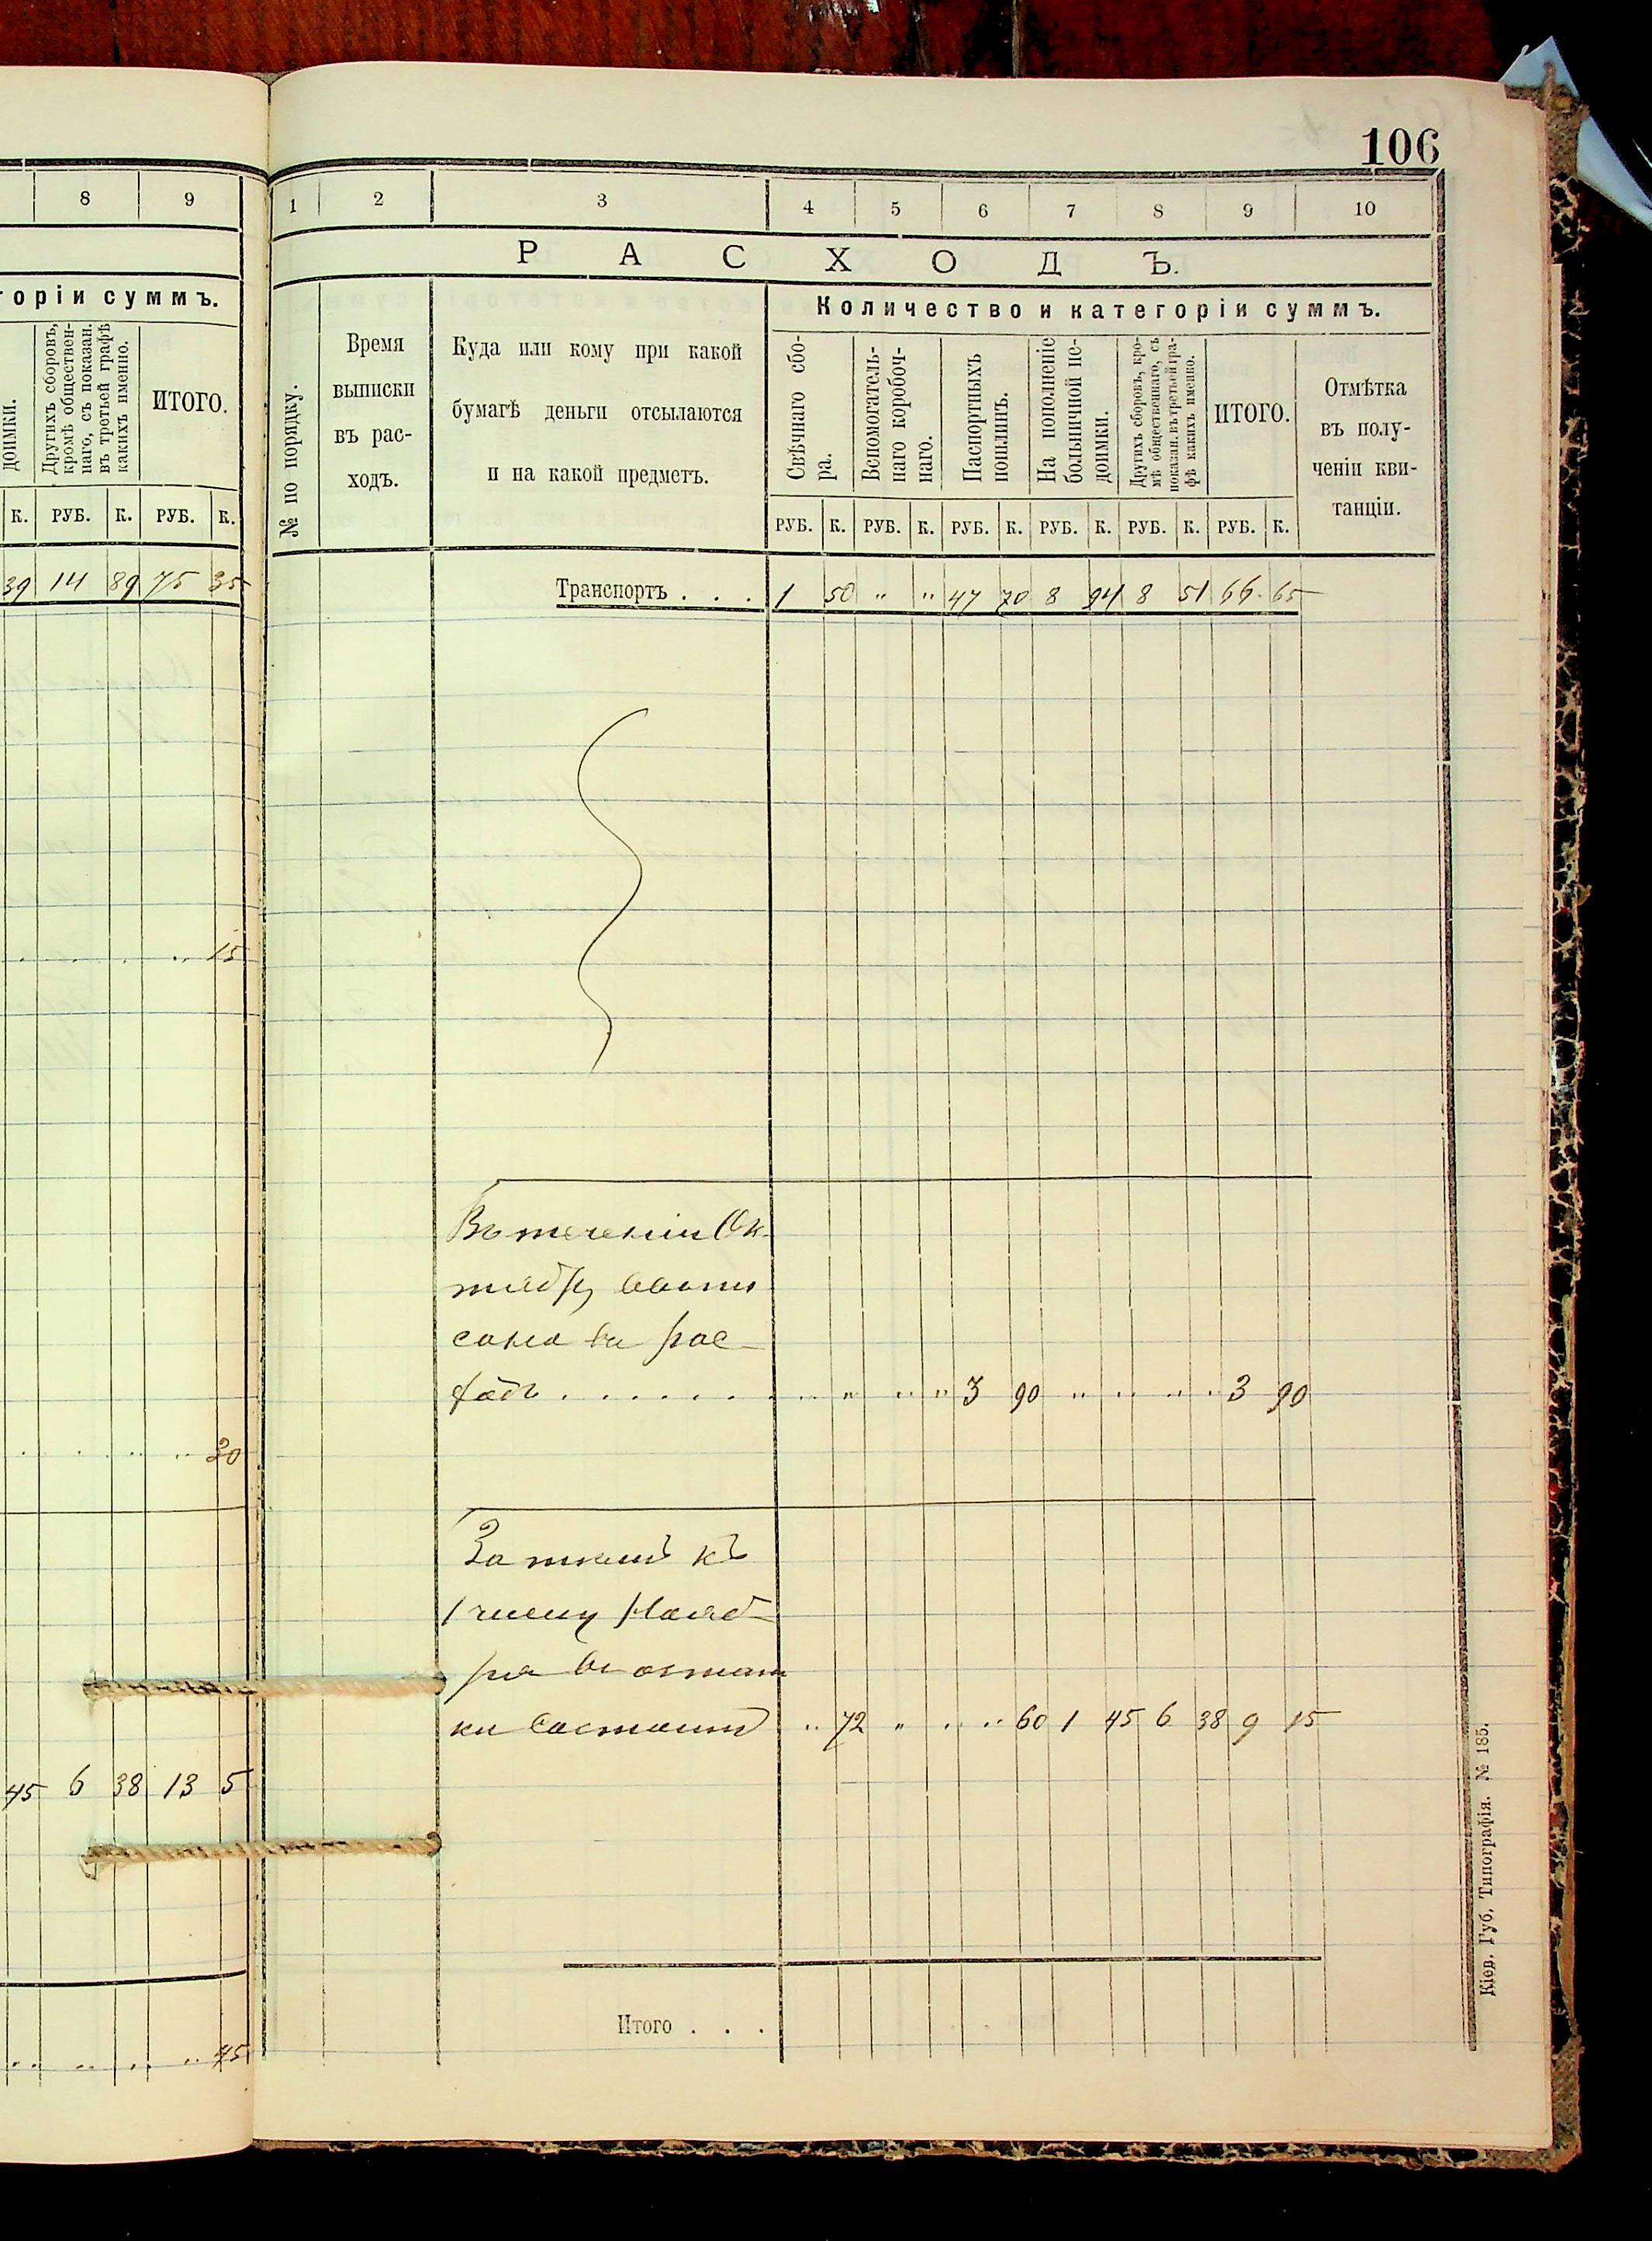 106
8 9
горіи суммъ.
доимки.
Другихъ сборовъ,
кромѣ обществен-
наго, съ показан.
въ третьей графѣ
какихъ именно.
ИТОГО.
К. РУБ. К. РУБ. К.
39 14 89 75 35
15
30
45 6 38 13 5
45
1 2 3 4 5 6 7 8 9 10
РАСХОДЪ.
№ по порядку.
Время
выписки
въ рас-
ходъ.
Куда или кому при какой
бумагѣ деньги отсылаются
и на какой предметъ.
Количество и категоріи суммъ.
Свѣчнаго сбо-
ра.
Вспомогатель-
наго коробоч-
наго.
Паспортныхъ
пошлинъ.
На пополненіе
больничной не-
доимки.
Другихъ сборовъ, кро-
мѣ общественнаго, съ
показан. въ третьей гра-
фѣ какихъ именно.
ИТОГО.
Отмѣтка
въ полу-
ченіи кви-
танціи.
РУБ. К. РУБ. К. РУБ. К. РУБ. К. РУБ. К. РУБ. К.
Транспортъ . . . 1 50 " " 47 70 8 94 8 51 66 65
Въ теченіи Ок-
тября выпи
сано въ рас-
ходъ . . . . . . . " " " 3 90 " " " 3 90
Затѣмъ къ
1 числу Нояб-
ря въ остат
ки состоитъ " 72 " " 60 1 45 6 38 9 15
Итого . . .
Кіев. Губ. Типографія. № 185.